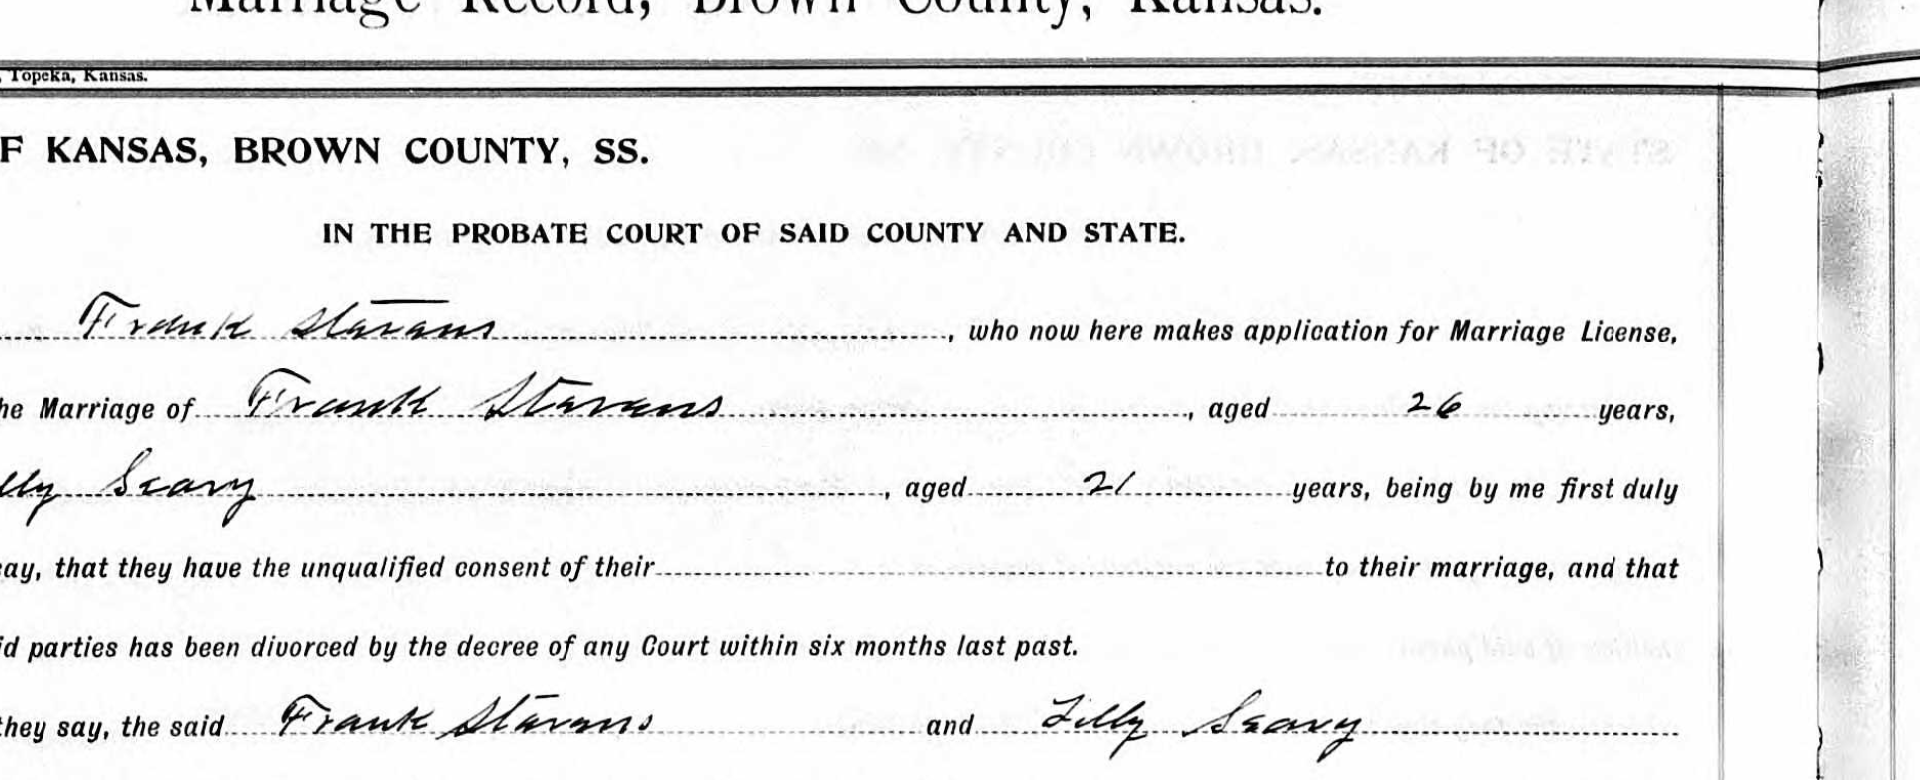 Marriage Record, Brown County, Kansas.
, Topeka, Kansas.
F KANSAS, BROWN COUNTY, SS.
IN THE PROBATE COURT OF SAID COUNTY AND STATE.
Frank Stavans, who now here makes application for Marriage License,
he Marriage of Frank Stavans, aged 26 years,
lly Seavy, aged 21 years, being by me first duly
ay, that they have the unqualified consent of their to their marriage, and that
id parties has been divorced by the decree of any Court within six months last past.
they say, the said Frank Stavans and Lilly Seavy